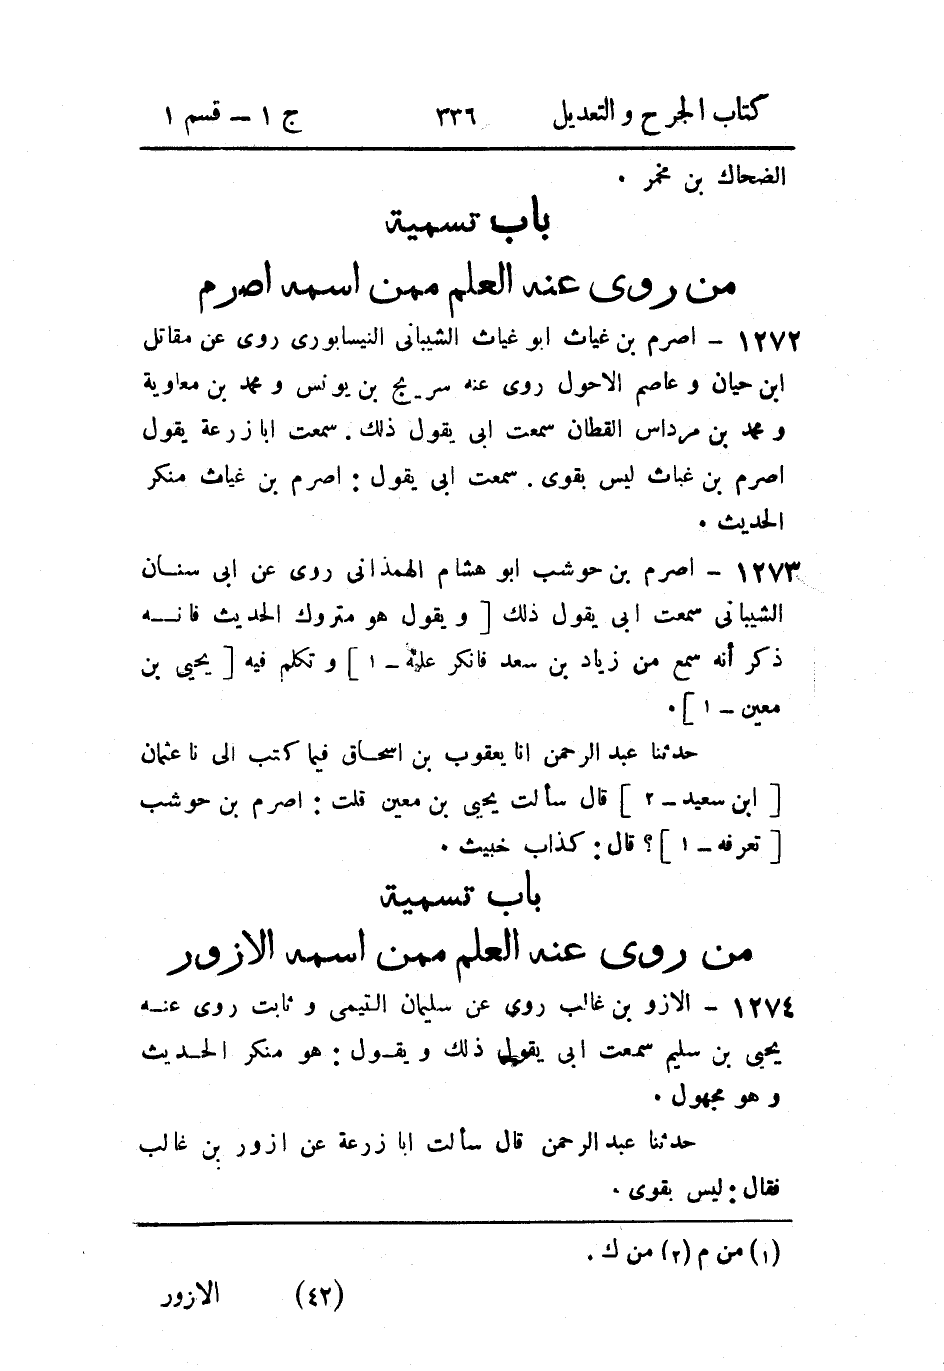 كتاب الجرح و التعديل ٣٣٦ ج ١ – قسم ١
الضحاك بن مخمر .
باب تسمية
من روى عنه العلم ممن اسمه اصرم
١٢٧٢ – اصرم بن غياث ابو غياث الشيبانى النيسابورى روى عن مقاتل
ابن حيان و عاصم الاحول روى عنه سريج بن يونس و محمد بن معاوية
و محمد بن مرداس القطان سمعت ابى يقول ذلك . سمعت ابا زرعة يقول
اصرم بن غياث ليس بقوى . سمعت ابى يقول : اصرم بن غياث منكر
الحديث .
١٢٧٣ – اصرم بن حوشب ابو هشام الهمذانى روى عن ابى سنان
الشيبانى سمعت ابى يقول ذلك [ و يقول هو متروك الحديث فانه
ذكر أنه سمع من زياد بن سعد فانكر عليه – ١ ] و تكلم فيه [ يحيى بن
معين – ١ ] .
حدثنا عبد الرحمن انا يعقوب بن اسحاق فيما كتب الى نا عثمان
[ ابن سعيد – ٢ ] قال سألت يحيى بن معين قلت : اصرم بن حوشب
[ تعرفه – ١ ] ؟ قال : كذاب خبيث .
باب تسمية
من روى عنه العلم ممن اسمه الازور
١٢٧٤ – الازو بن غالب روى عن سليمان التيمى و ثابت روى عنه
يحيى بن سليم سمعت ابى يقول ذلك و يقول : هو منكر الحديث
و هو مجهول .
حدثنا عبد الرحمن قال سألت ابا زرعة عن ازور بن غالب
فقال : ليس بقوى .
(١) من م (٢) من ك .
(٤٢) الازور